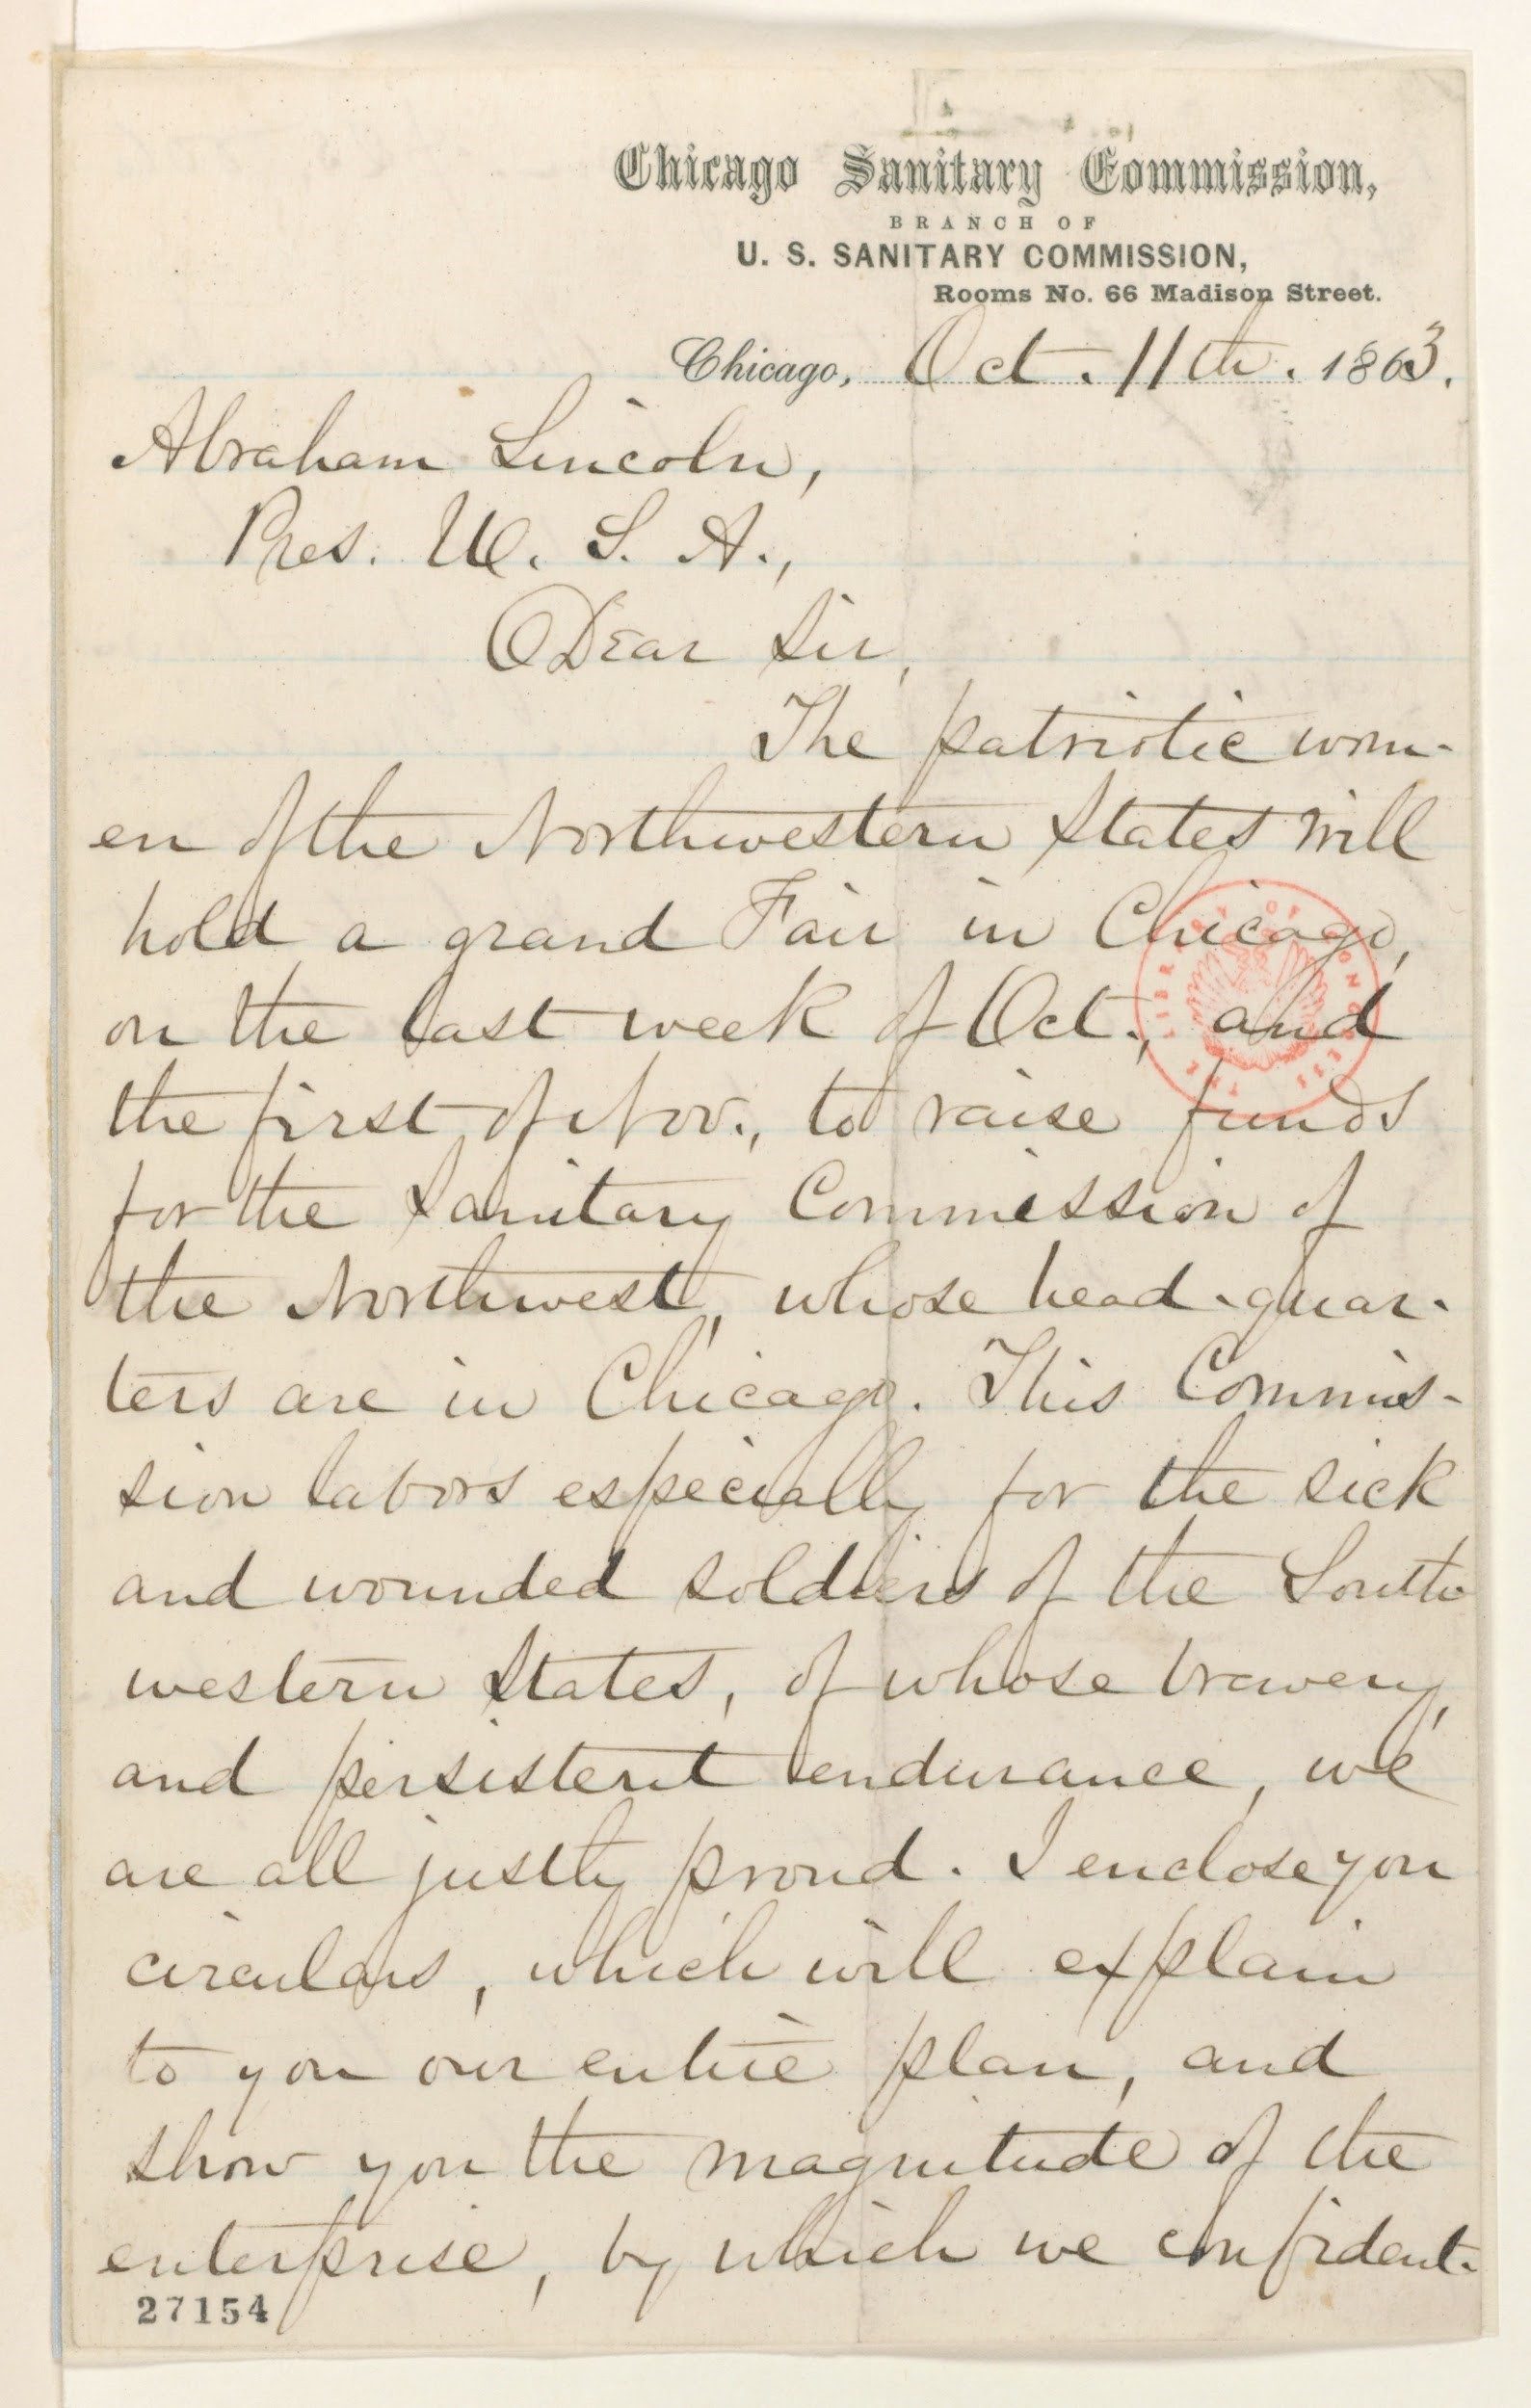 Chicago Sanitary Commission,
BRANCH OF
U. S. SANITARY COMMISSION,
Rooms No. 66 Madison Street.
Chicago, Oct. 11th. 1863.
Abraham Lincoln,
Pres. U. S. A.,
Dear Sir,
The patriotic wom-
en of the Northwestern States will
hold a grand Fair in Chicago,
on the last week of Oct., and
the first of Nov., to raise funds
for the Sanitary Commission of
the Northwest, whose head-quar-
ters are in Chicago. This Commis-
sion labors especially for the sick
and wounded soldiers of the South
western States, of whose bravery,
and persistent endurance, we
are all justly proud. I enclose you
circulars, which will explain
to you our entire plan, and
show you the magnitude of the
enterprise, by which we confident-
27154
THE LIBRARY OF CONGRESS